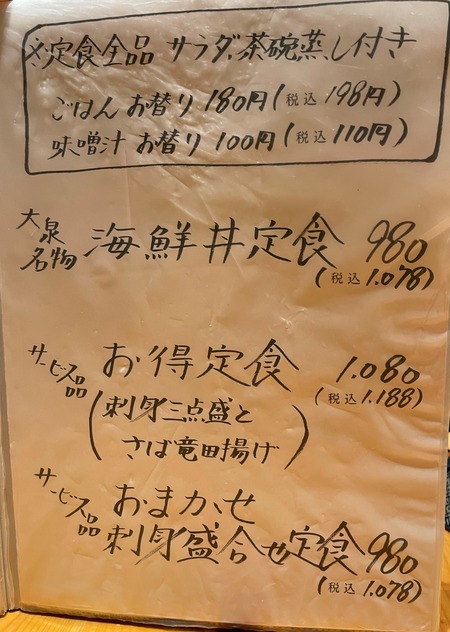 ※定食全品 サラダ、茶碗蒸し付き
ごはん お替り 180円(税込 198円)
味噌汁 お替り 100円(税込 110円)
大泉名物 海鮮丼定食 980
(税込 1.078)
サービス品 お得定食 1.080
(税込 1.188)
(刺身三点盛と
さば竜田揚げ)
サービス品 おまかせ
刺身盛合せ定食 980
(税込 1.078)